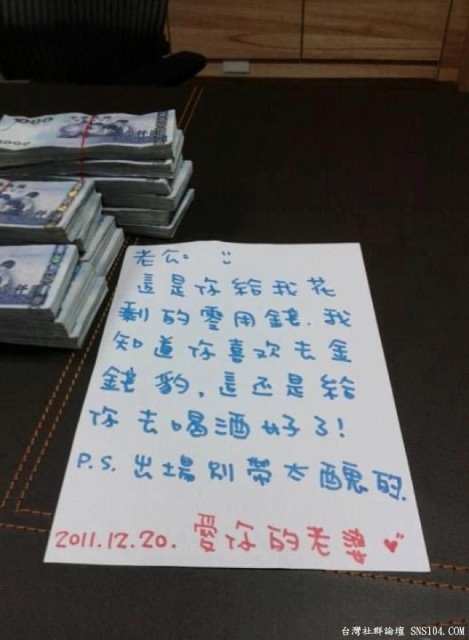 1000
老公:
這是你給我花
剩的零用錢.我
知道你喜欢去金
錢豹,這还是給
你去喝酒好了!
P.S. 出場別帶太醜的.
2011.12.20. 愛你的老婆
台灣社群論壇 SNS104.COM